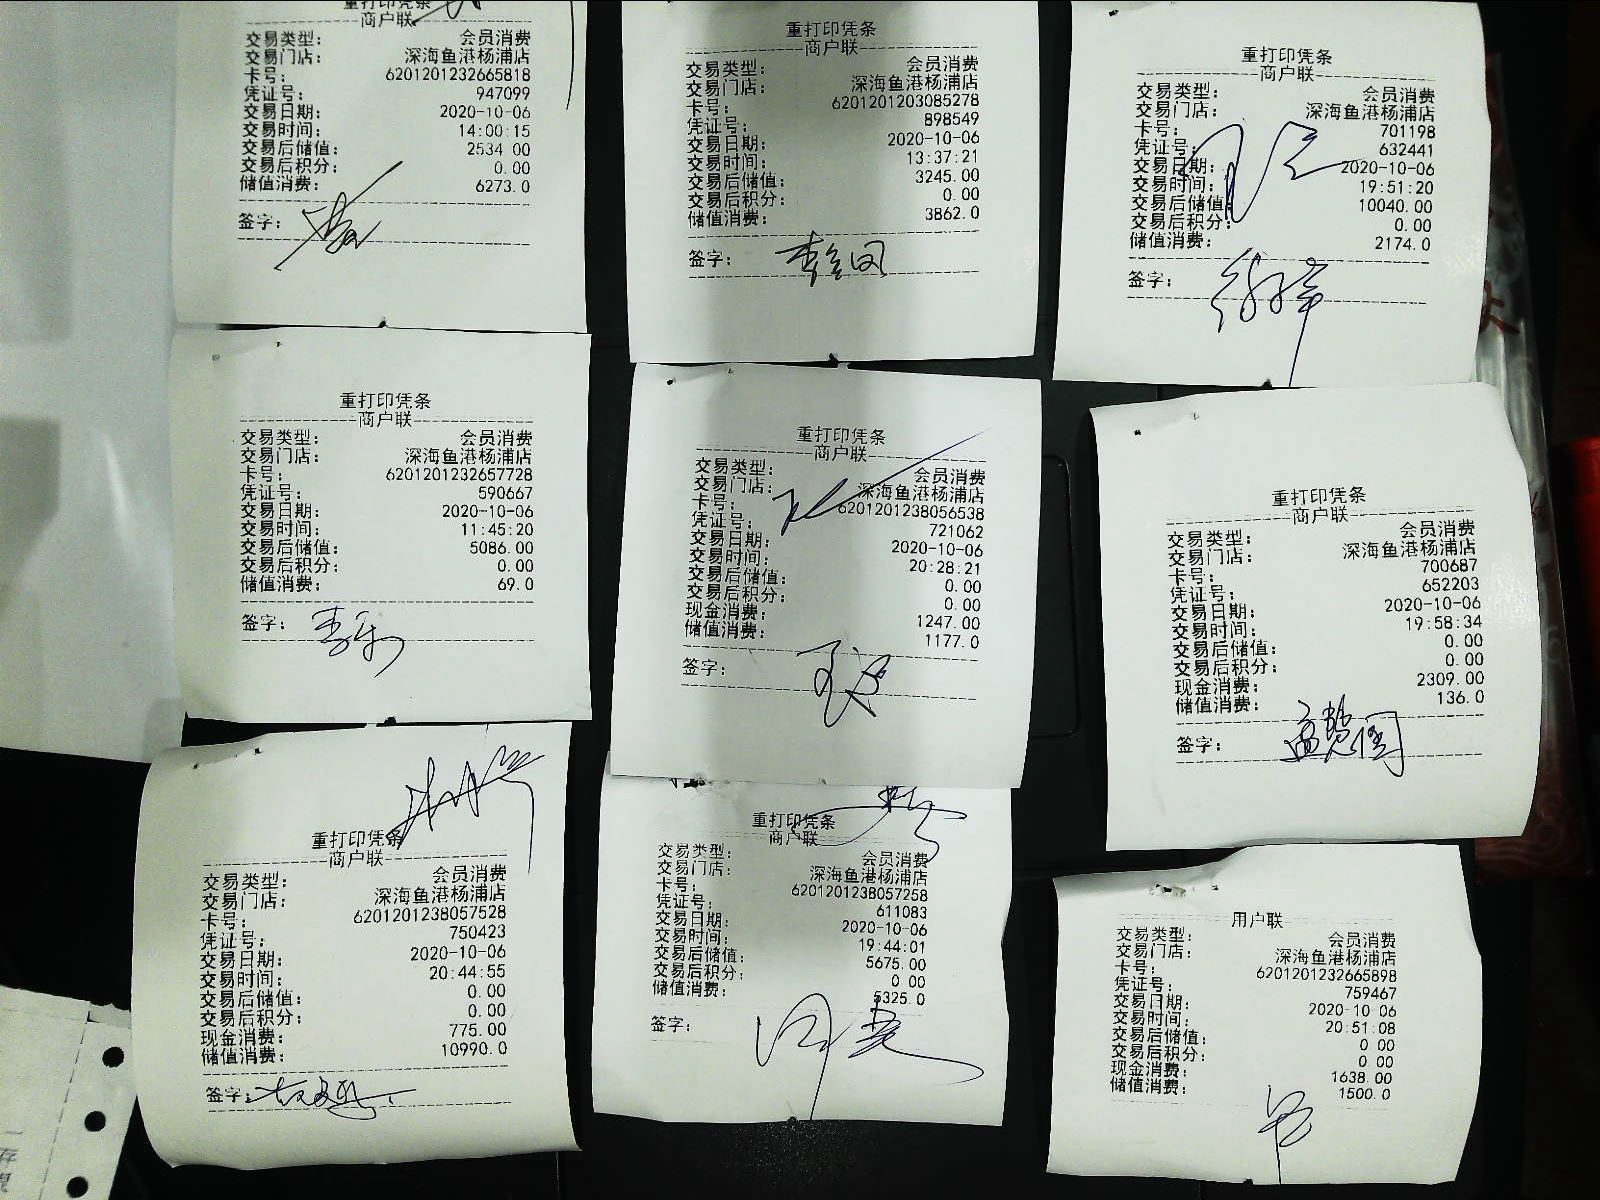 重打印凭条
商户联
交易类型: 会员消费
交易门店: 深海鱼港杨浦店
卡号: 6201201232665818
凭证号: 947099
交易日期: 2020-10-06
交易时间: 14:00:15
交易后储值: 2534.00
交易后积分: 0.00
储值消费: 6273.0
签字:
重打印凭条
商户联
交易类型: 会员消费
交易门店: 深海鱼港杨浦店
卡号: 6201201203085278
凭证号: 898549
交易日期: 2020-10-06
交易时间: 13:37:21
交易后储值: 3245.00
交易后积分: 0.00
储值消费: 3862.0
签字:
重打印凭条
商户联
交易类型: 会员消费
交易门店: 深海鱼港杨浦店
卡号: 701198
凭证号: 632441
交易日期: 2020-10-06
交易时间: 19:51:20
交易后储值: 10040.00
交易后积分: 0.00
储值消费: 2174.0
签字:
重打印凭条
商户联
交易类型: 会员消费
交易门店: 深海鱼港杨浦店
卡号: 6201201232657728
凭证号: 590667
交易日期: 2020-10-06
交易时间: 11:45:20
交易后储值: 5086.00
交易后积分: 0.00
储值消费: 69.0
签字:
重打印凭条
商户联
交易类型: 会员消费
交易门店: 深海鱼港杨浦店
卡号: 6201201238056538
凭证号: 721062
交易日期: 2020-10-06
交易时间: 20:28:21
交易后储值: 0.00
交易后积分: 0.00
现金消费: 1247.00
储值消费: 1177.0
签字:
重打印凭条
商户联
交易类型: 会员消费
交易门店: 深海鱼港杨浦店
卡号: 700687
凭证号: 652203
交易日期: 2020-10-06
交易时间: 19:58:34
交易后储值: 0.00
交易后积分: 0.00
现金消费: 2309.00
储值消费: 136.0
签字:
重打印凭条
商户联
交易类型: 会员消费
交易门店: 深海鱼港杨浦店
卡号: 6201201238057528
凭证号: 750423
交易日期: 2020-10-06
交易时间: 20:44:55
交易后储值: 0.00
交易后积分: 0.00
现金消费: 775.00
储值消费: 10990.0
签字:
重打印凭条
商户联
交易类型: 会员消费
交易门店: 深海鱼港杨浦店
卡号: 6201201238057258
凭证号: 611083
交易日期: 2020-10-06
交易时间: 19:44:01
交易后储值: 5675.00
交易后积分: 0.00
储值消费: 5325.0
签字:
用户联
交易类型: 会员消费
交易门店: 深海鱼港杨浦店
卡号: 6201201232665898
凭证号: 759467
交易日期: 2020-10-06
交易时间: 20:51:08
交易后储值: 0.00
交易后积分: 0.00
现金消费: 1638.00
储值消费: 1500.0